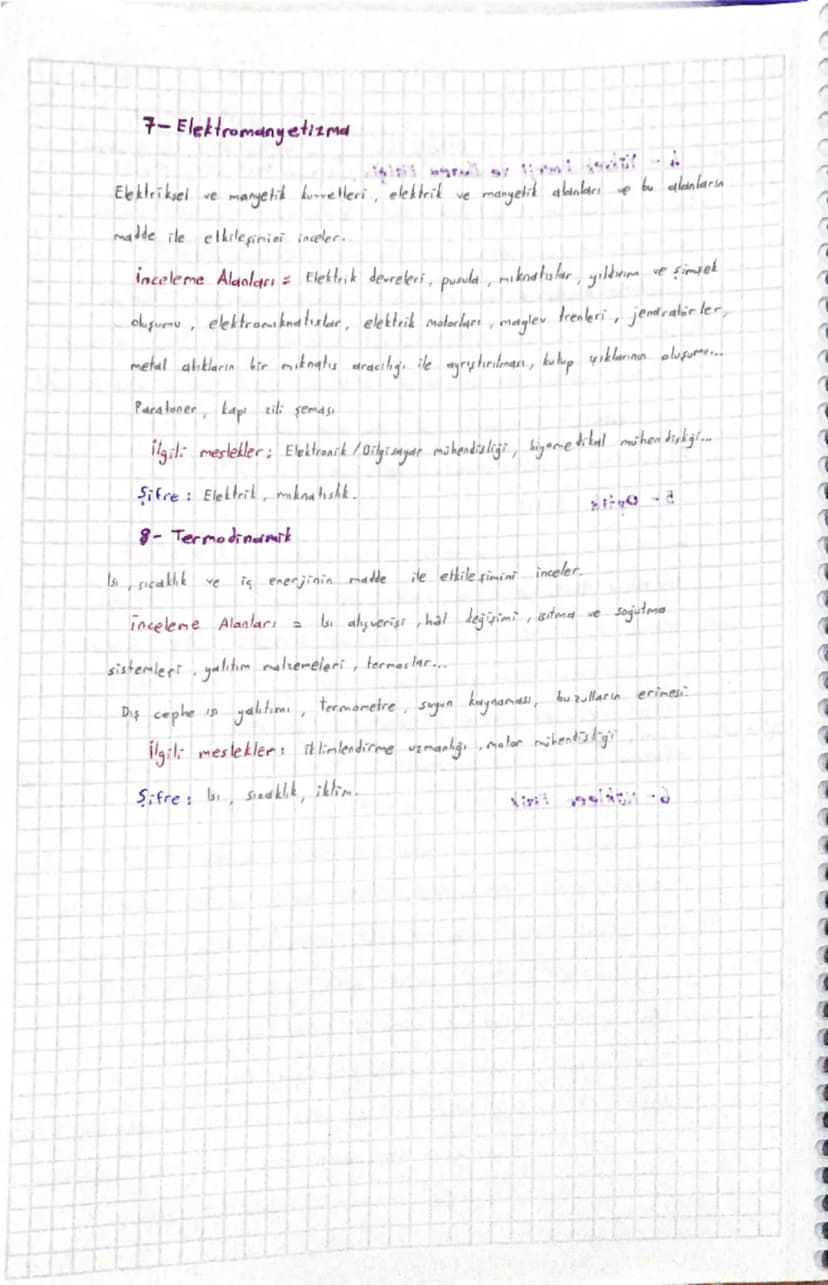 7- Elektromanyetizma
Elektriksel ve manyetik kuvvetleri, elektrik ve manyetik alanları ve bu alanların
madde ile etkileşimini inceler.
İnceleme Alanları = Elektrik devreleri, pusula, mıknatıslar, yıldırım ve şimşek
oluşumu, elektromıknatıslar, elektrik motorları, maglev trenleri, jeneratörler,
metal atıkların bir mıknatıs aracılığı ile ayrıştırılması, kutup ışıklarının oluşumu...
Paratoner, kapı zili şeması
İlgili meslekler: Elektronik / Bilgisayar mühendisliği, biyomedikal mühendisliği...
Şifre: Elektrik, mıknatıslık.
8- Termodinamik
Isı, sıcaklık ve iç enerjinin madde ile etkileşimini inceler.
İnceleme Alanları = Isı alışverişi, hâl değişimi, ısıtma ve soğutma
sistemleri, yalıtım malzemeleri, termoslar...
Dış cephe ısı yalıtımı, termometre, suyun kaynaması, buzulların erimesi
İlgili meslekler: iklimlendirme uzmanlığı, motor mühendisliği
Şifre: Isı, sıcaklık, iklim.
5- Optik
6- Nükleer Fizik